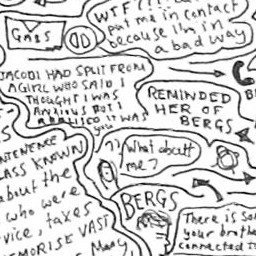 WTF???!!! 
put me in contact
because I'm in
a bad way
GABS
JACOBI HAD SPLIT FROM
A GIRL WHO SAID I
THOUGHT I WAS
ANXIOUS BUT I
REALISED IT WAS
you
REMINDED
HER OF
BERGS
What about
me?
??
CLASS KNOWN
about the
who were
vice, taxes
MEMORISE VAST
Many
BERGS
There is so
your broth
connected t